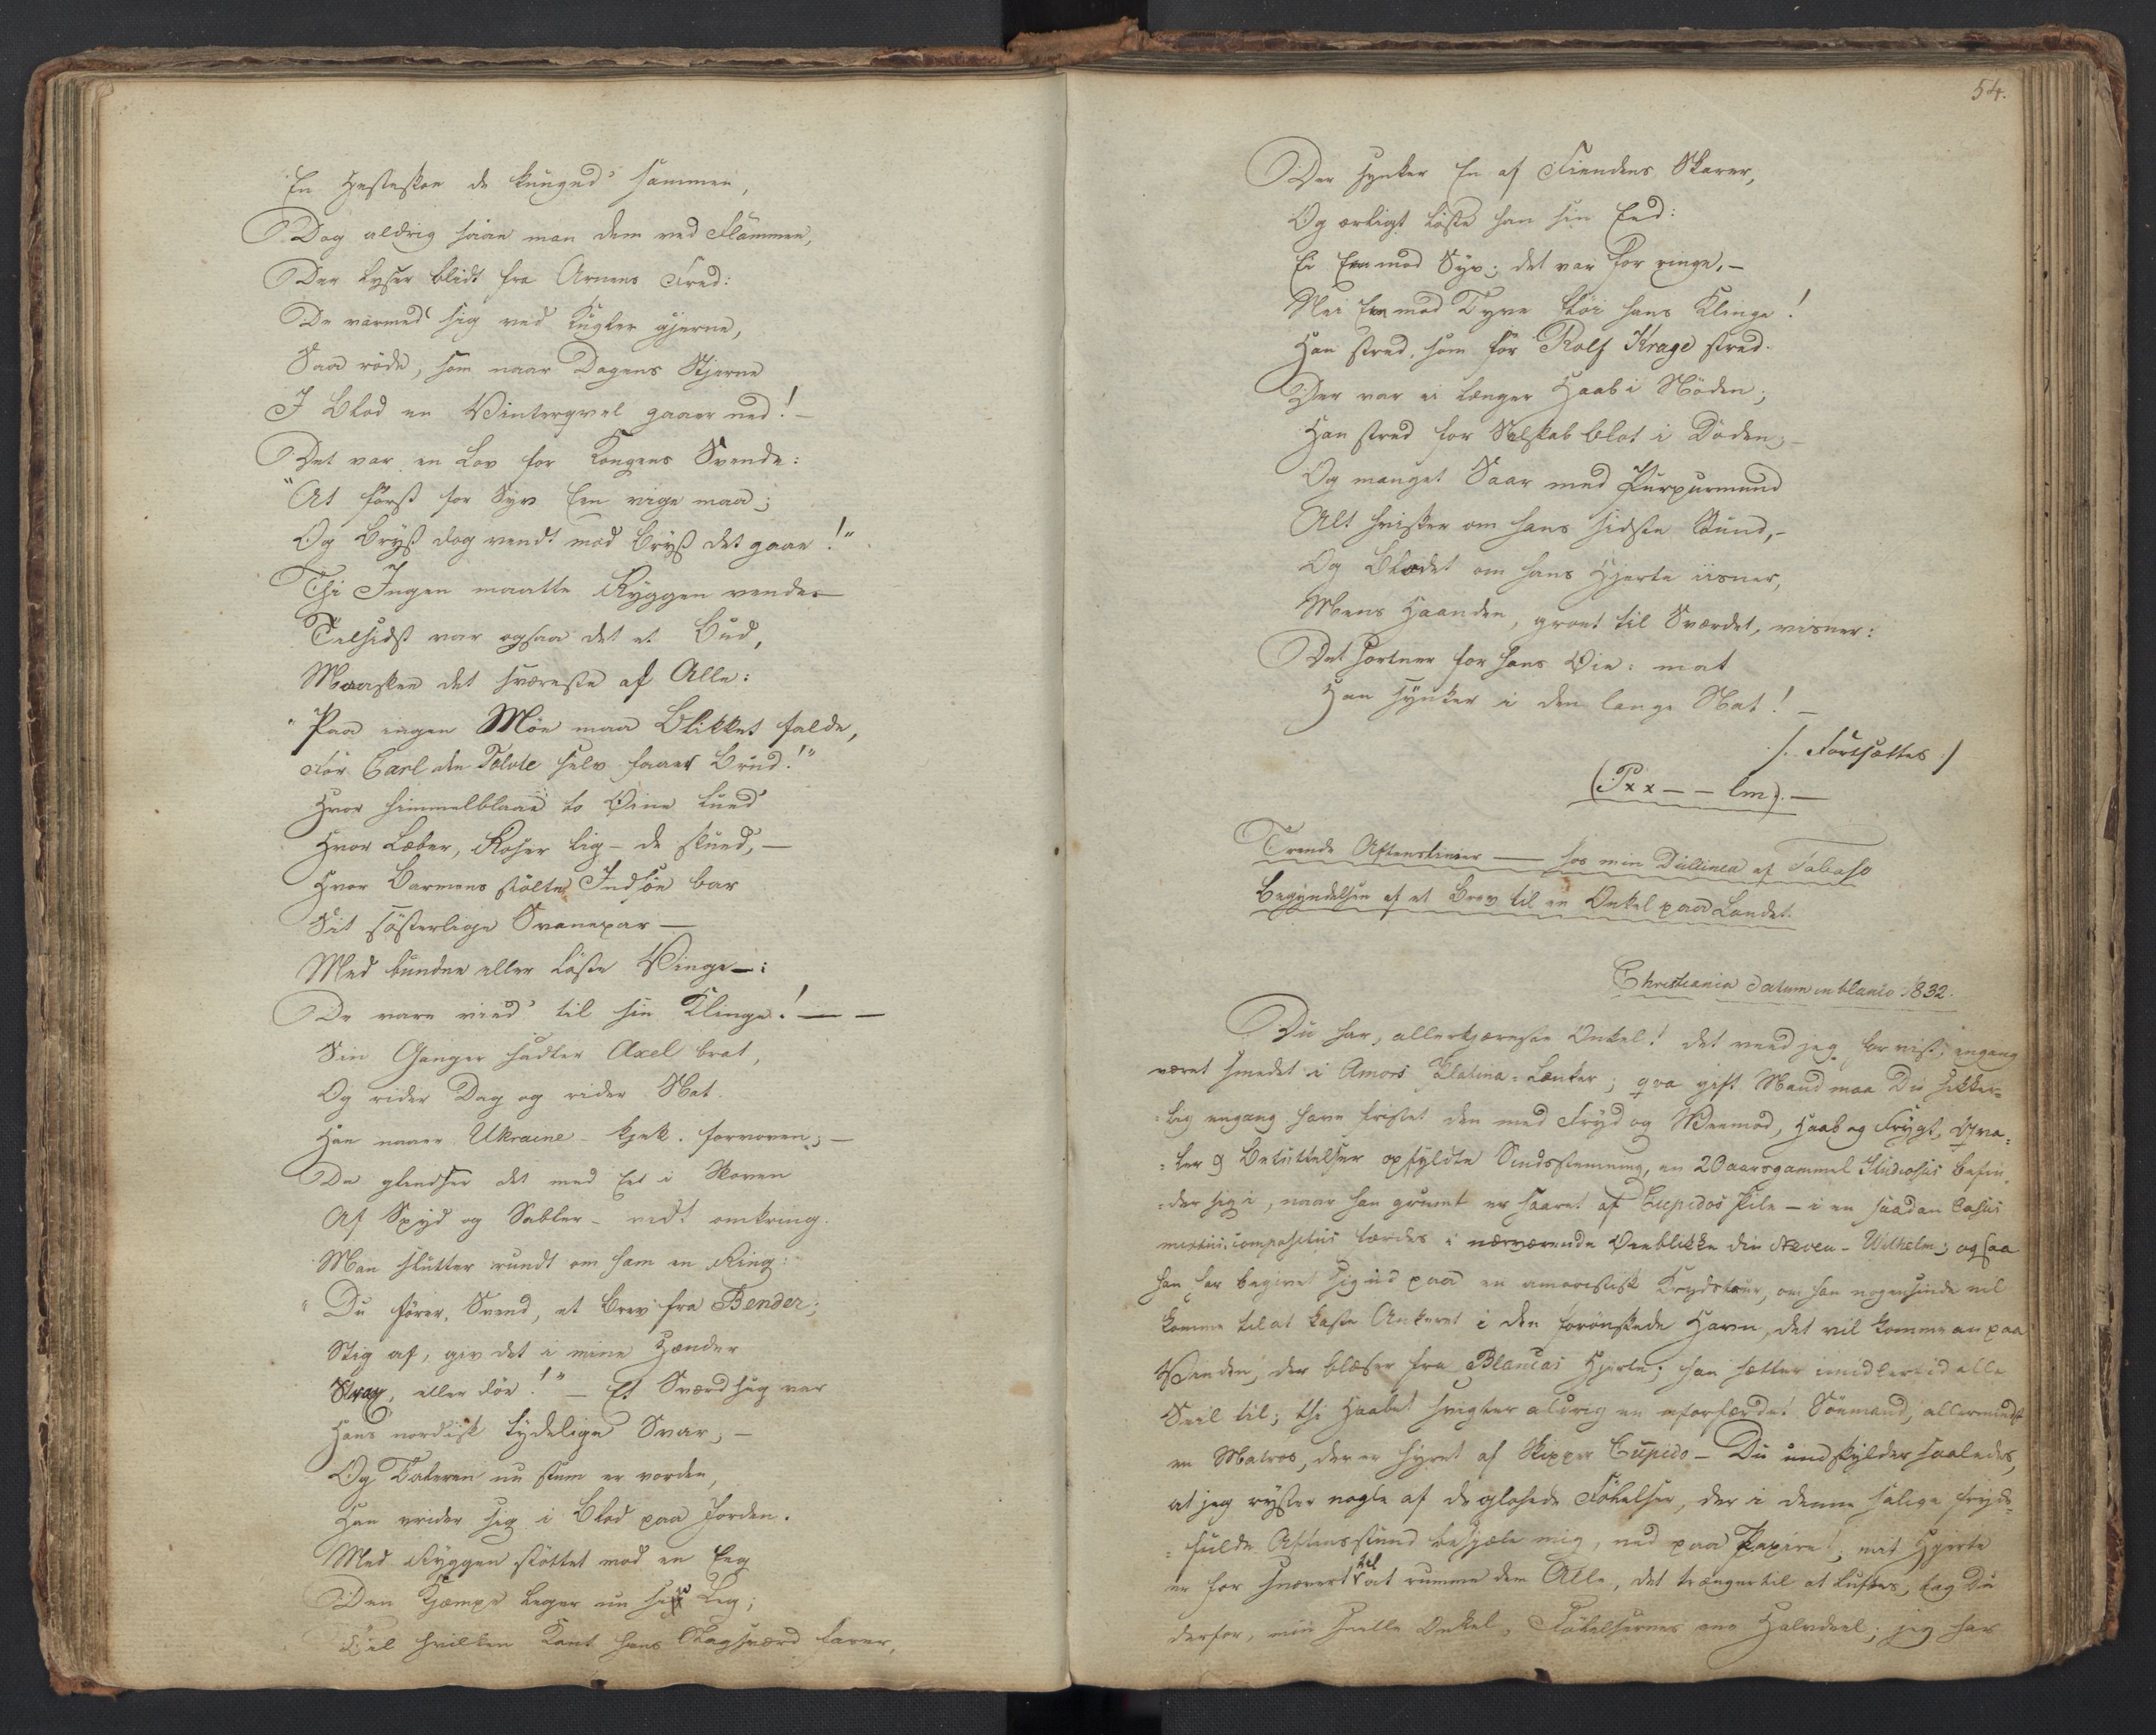 En Hesteskoe de knuged' sammen,
Dog aldrig saae man dem ved Flammen,
Der lyser blidt fra Arnens Fred:
De varmed sig ved Kugler gjerne,
Saa röde, som naar Dagens Stjerne
I Blod en Vinterqvel gaaer ned! –
Det var en Lov for Kongens Svende:
"At först for Syv Een vige maa;
Og Bryst dog vendt mod Bryst det gaae!"
Thi Ingen maatte Ryggen vende –
Tilsidst var ogsaa det et Bud,
Maaskee det sværeste af Alle:
"Paa ingen Möe maa Blikket falde,
För Carl den Tolvte selv faaer Brud!"
Hvor himmelblaae to Öine lued'
Hvor Læber, Roser lig – de skued, –
Hvor Barmens stolte Indsöe bar
Sit sösterlige Svanepar –
Med bundne eller löste Vinge –:
De vare vied' til sin Klinge! – –
Sin Ganger sadler Axel brat,
Og rider Dag og rider Nat.
Han naaer Ukraine – kjek. forvoven; –
Da glindser det med Eet i Skoven
Af Spyd og Sabler – vidt omkring.
Man slutter rundt om ham en Ring:
"Du förer, Svend, et Brev fra Bender;
Stig af, giv det i mine Hænder
Strax, eller döe!" – Et Sværdhug var
Hans nordisk tydelige Svar; –
Og Taleren nu stum er vorden,
Han vrider sig i Blod paa Jorden.
Med Ryggen stöttet mod en Eeg
Den Kjæmpe leger nu sin Leg;
Til hvilken Kant hans Slagsværd farer,
54.
Der synker En af Fiendens Skarer,
Og ærligt löste han sin Eed:
Ei Een mod Syv; det var for ringe, –
Nei Een mod Tyve slöi hans Klinge!
Han stred, som för Rolf Krage stred.
Der var ei længer Haab i Nöden;
Han stred for Selskab blot i Döden; –
Og manget Saar med Purpurmund
Alt hvisker om hans sidste Stund, –
Og Blodet om hans Hjerte iisner,
Mens Haanden, groet til Sværdet, visner:
Det sortner for hans Öie: mat
Han synker i den lange Nat! –
/: Fortsættes /
(Pxx – – lm). –
Trende Aftenstimer – hos min Dullinea af Taboso
Begyndelsen af et Brev til en Onkel paa Landet.
Christiania datum in blanco 1832.
Du har, allerkjæreste Onkel! det veed jeg for vist, engang
været smedet i Amors Platina-Lænker; qva gift Mand maa Du sikker-
-lig engang have fristet den med Fryd og Veemod, Haab og Frygt, Qva-
-ler og opfyldte Sindsstemning, en 20 aarsgammel Studiosus befin-
-der sig i, naar han grumt er saaret af Cupidos Pile – i en saadan Casus
compositus færdes i nærværende Öieblikke din Neveu – Wilhelm; ogsaa
han har begivet sig ud paa en amoristisk Krydstour, om han nogensinde vil
komme til at kaste Ankeret i den forönskede Havn, det vil komme an paa
Vinden, der blæser fra Blancas Hjerte; han sætter imidlertid alle
Seil til; thi Haabet svigter aldrig en uforfærdet Sömand, allermindst
en Matros, der er hyret af Skipper Cupido – Du undskylder saaledes,
at jeg ryster nogle af de Fölelser, der i denne salige fryd-
-fulde Aftensstund besjæle mig, ned paa Papiret; mit Hjerte
er for snevert til at rumme dem Alle, det trænger til at luftes, tag Du
derfor, min snille Onkel, Fölelsernes ene Halvdeel; jeg har